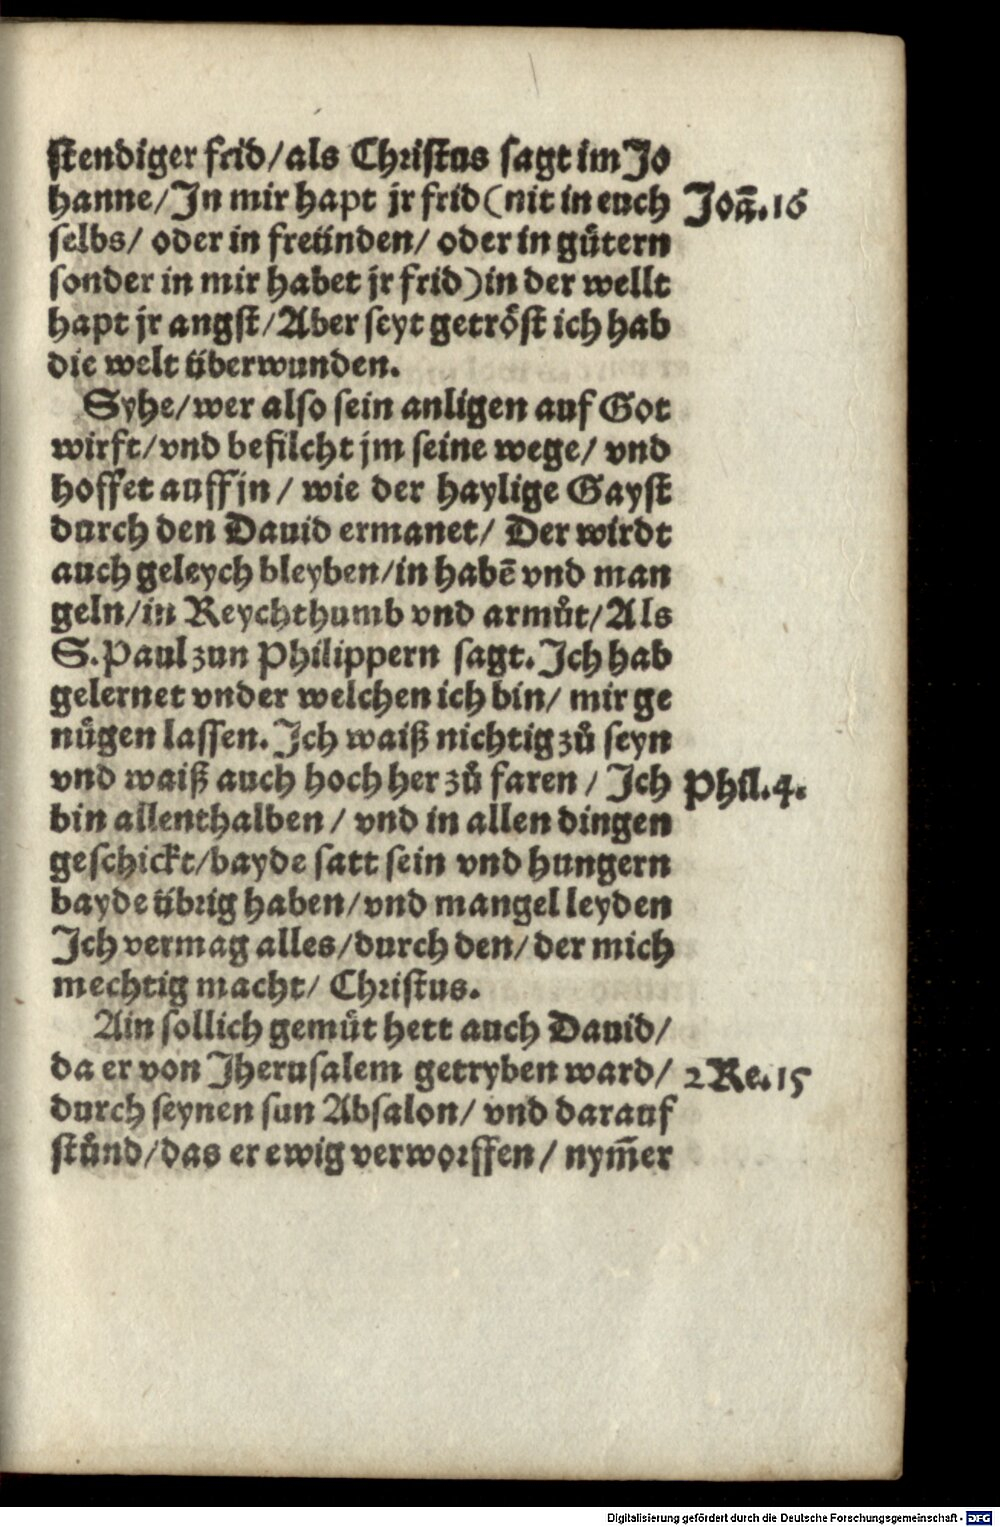 ſtendiger frid/als Chriſtus ſagt im Jo
hanne/In mir hapt jr frid(nit in euch
Joā̃.16
ſelbs/ oder in freünden/ oder in guͤtern
ſonder in mir habet jr frid)in der wellt
hapt jr angſt/Aber ſeyt getroͤſt ich hab
die welt überwunden.
Syhe/wer alſo ſein anligen auf Got
wirft/vnd befilcht jm ſeine wege/ vnd
hoffet auff jn/ wie der haylige Gayſt
durch den Dauid ermanet/ Der wirdt
auch geleych bleyben/in habē vnd man
geln/in Reychthumb vnd armůt/Als
S.Paul zun Philippern ſagt.Ich hab
gelernet vnder welchen ich bin/ mir ge
nuͤgen laſſen.Ich waiß nichtig zů ſeyn
vnd waiß auch hoch her zů faren/ Ich
Phil.4.
bin allenthalben/ vnd in allen dingen
geſchickt/bayde ſatt ſein vnd hungern
bayde übrig haben/vnd mangel leyden
Ich vermag alles/durch den/der mich
mechtig macht/ Chriſtus.
Ain ſollich gemuͤt hett auch Dauid/
da er von Jheruſalem getryben ward/
2 Re.15
durch ſeynen ſun Abſalon/ vnd darauf
ſtuͤnd/das er ewig verworffen/ nym̄er
Digitalisierung gefördert durch die Deutsche Forschungsgemeinschaft - DFG